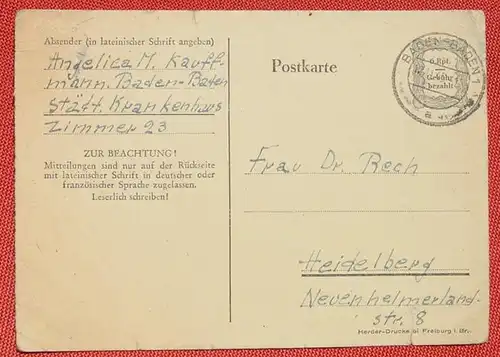 Absender (in lateinischer Schrift angeben)
Angelica M. Kauff-
mann. Baden-Baden
Stätt. Krankenhaus
Zimmer 23
ZUR BEACHTUNG!
Mitteilungen sind nur auf der Rückseite
mit lateinischer Schrift in deutscher oder
französischer Sprache zugelassen.
Leserlich schreiben!
Postkarte
BADEN-BADEN
6 Rpf.
Gebühr
bezahlt
a
Frau Dr. Rech
Heidelberg
Neuenheimerland-
str. 8
Herder-Drucke in Freiburg i. Br.